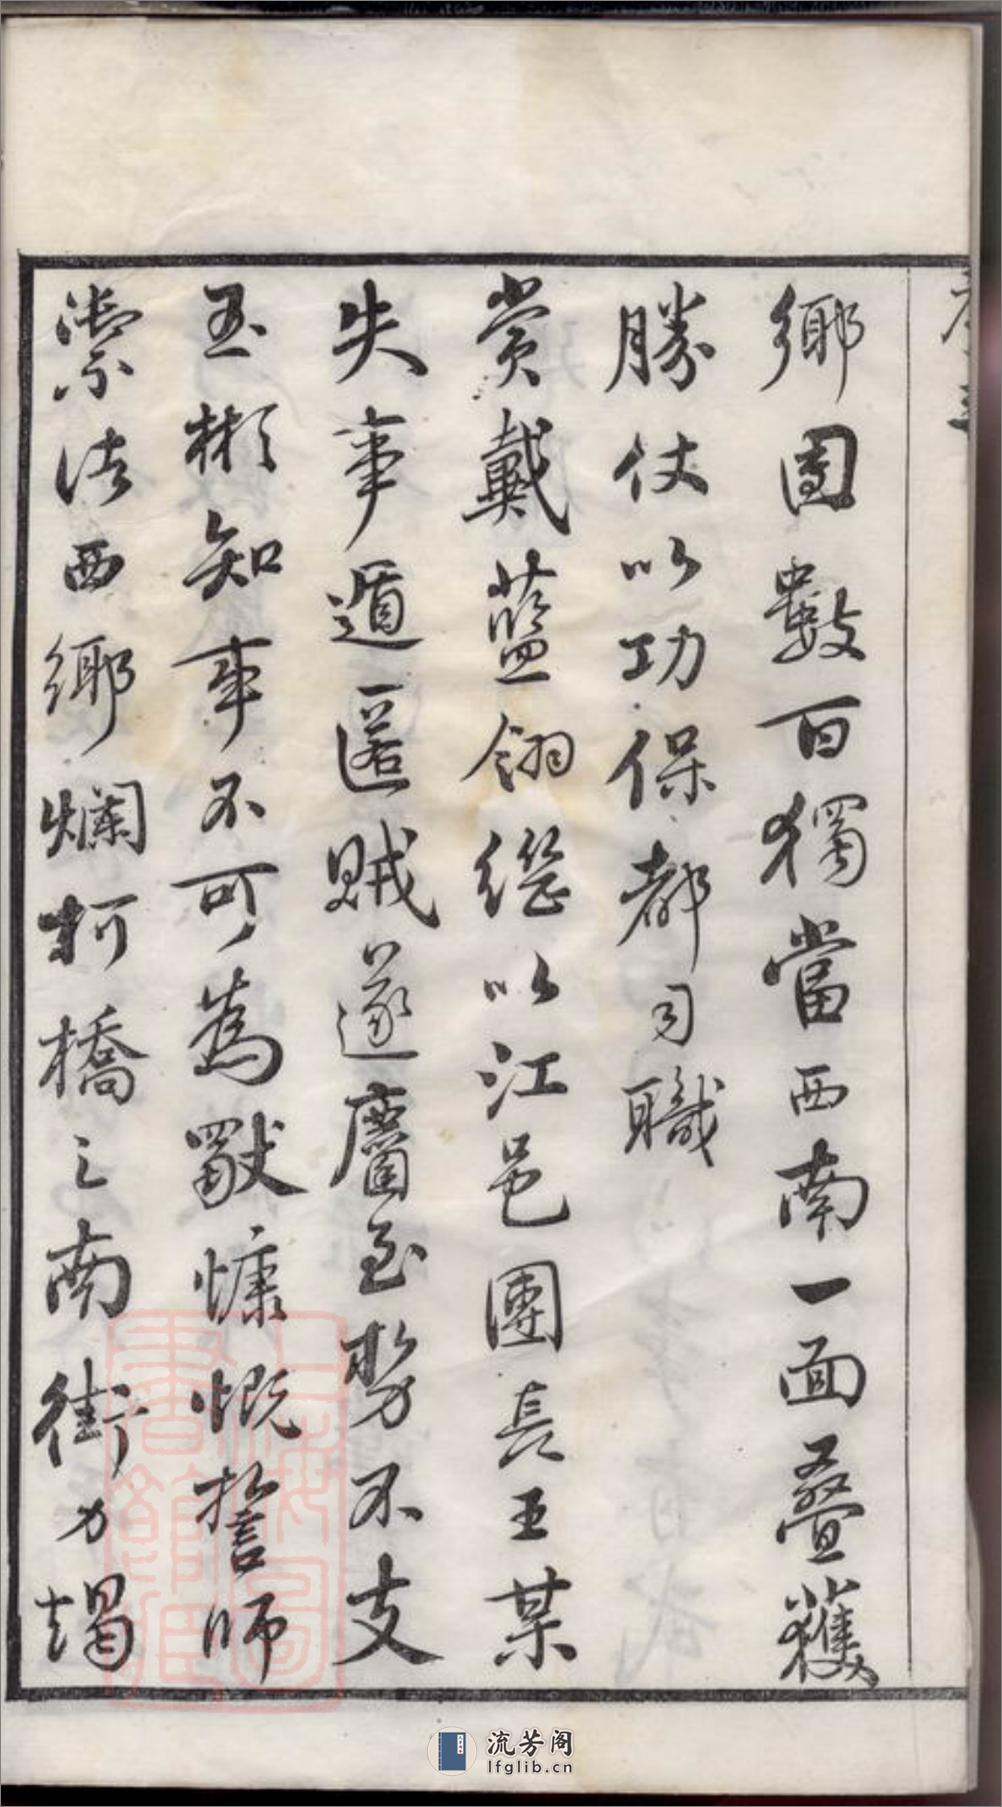 鄉團數百獨當西南一面疊獲
勝仗以功保都司職
賞戴藍翎繼以江邑團長王某
失事遁匿賊遂麕至勢不支
玉彬知事不可為猷慷慨誓師
禦諸西鄉爛柯橋之南街力竭
流芳阁
lfglib.cn